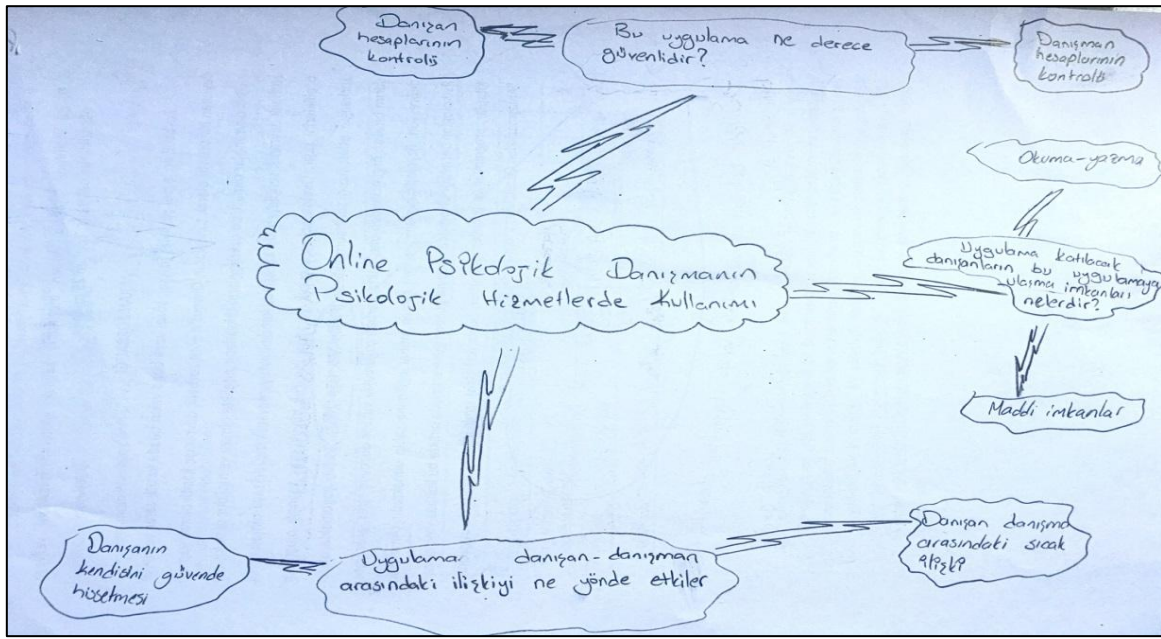 Danışan
hesaplarının
kontrolü
Bu uygulama ne derece
güvenlidir?
Danışman
hesaplarının
kontrolü
Okuma-yazma
Online Psikolojik Danışmanın
Psikolojik Hizmetlerde Kullanımı
Uygulama katılacak
danışanların bu uygulamaya
ulaşma imkanları
nelerdir?
Maddi imkanlar
Danışanın
kendisini güvende
hissetmesi
Uygulama danışan-danışman
arasındaki ilişkiyi ne yönde etkiler
Danışan danışma
arasındaki sıcak
ilişki